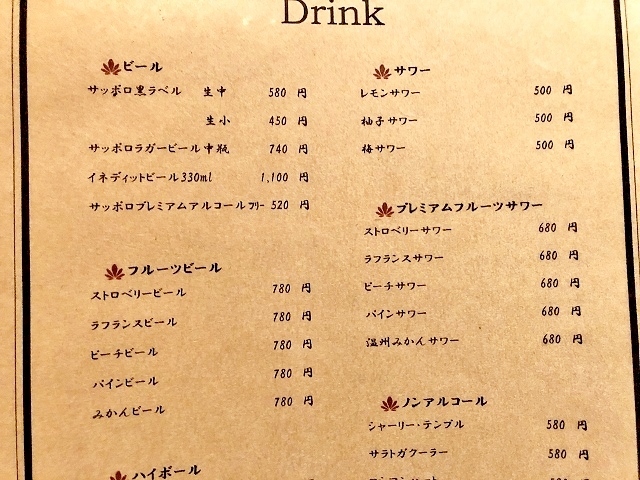 Drink
ビール
サッポロ黒ラベル 生中 580 円
生小 450 円
サッポロラガービール中瓶 740 円
イネディットビール330ml 1,100 円
サッポロプレミアムアルコールフリー 520 円
フルーツビール
ストロベリービール 780 円
ラフランスビール 780 円
ピーチビール 780 円
パインビール 780 円
みかんビール 780 円
ハイボール
サワー
レモンサワー 500 円
柚子サワー 500 円
梅サワー 500 円
プレミアムフルーツサワー
ストロベリーサワー 680 円
ラフランスサワー 680 円
ピーチサワー 680 円
パインサワー 680 円
温州みかんサワー 680 円
ノンアルコール
シャーリー・テンプル 580 円
サラトガクーラー 580 円